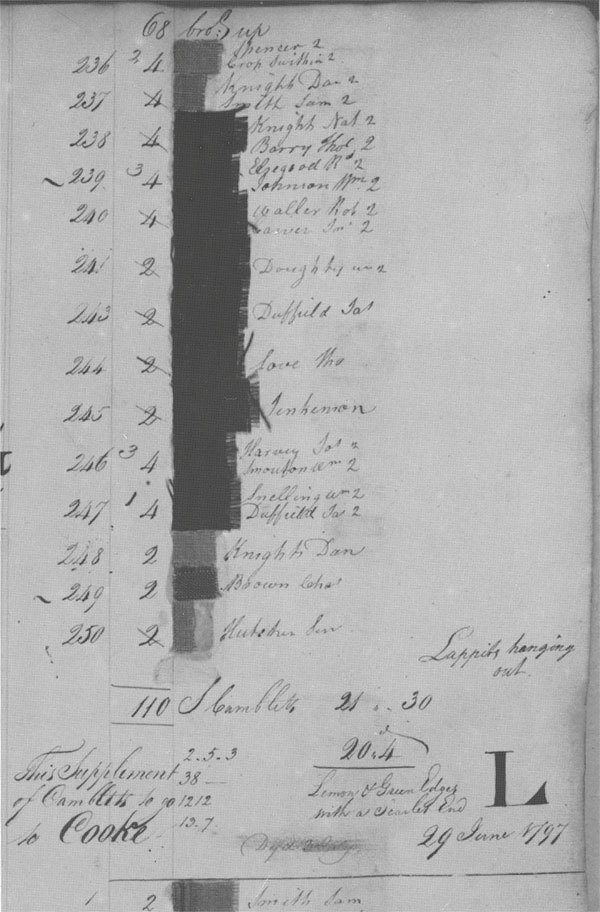 68 bro.t up
Spencer 2
236 2 4 Crop Swithin 2
Knights Dan 2
237 4 Smith Sam 2
Knight Nat 2
238 4 Barry Tho.s 2
Elzegood R.d 2
239 3 4 Johnson Wm 2
Waller Rob 2
240 4
241 2 Doughty Wm 2
243 2 Duffield Jas
244 2 Love Tho
245 2 Jenkenson
Harvey Jos 2
246 3 4 Smouton Wm 2
Snelling Wm 2
247 1 4 Duffield Jas 2
248 2 Knights Dan
249 2 Brown Chas
250 2
Lappits hanging
out
110 S Camblets 21 .. 30
2.5.3
20.4
This Supplement 38
of Camblets to go 12 12
to Cooke 13.7
Lemon & Green Edges
with a Scarlet End
L
29 June 1797
1 2 Smith Sam